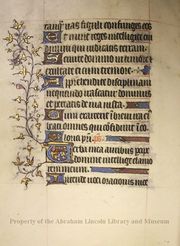 tanq̃ vas figuli confringes eos
Et nunc reges intelligite eru
dimini qui iudicatis terram
Servite domino in timore et
exultate ei cum tremore
Apprehendite disciplinam
nequando irascatur dominus
et pereatis de via iusta
Cum exarserit in brevi ira ei⁹
beati omnes qui cōfidunt ī eo
Gloria pri
Verba mea auribus percipe
domine intellige clamo
rem meum
Intende voci orationis mee
Property of the Abraham Lincoln Library and Museum